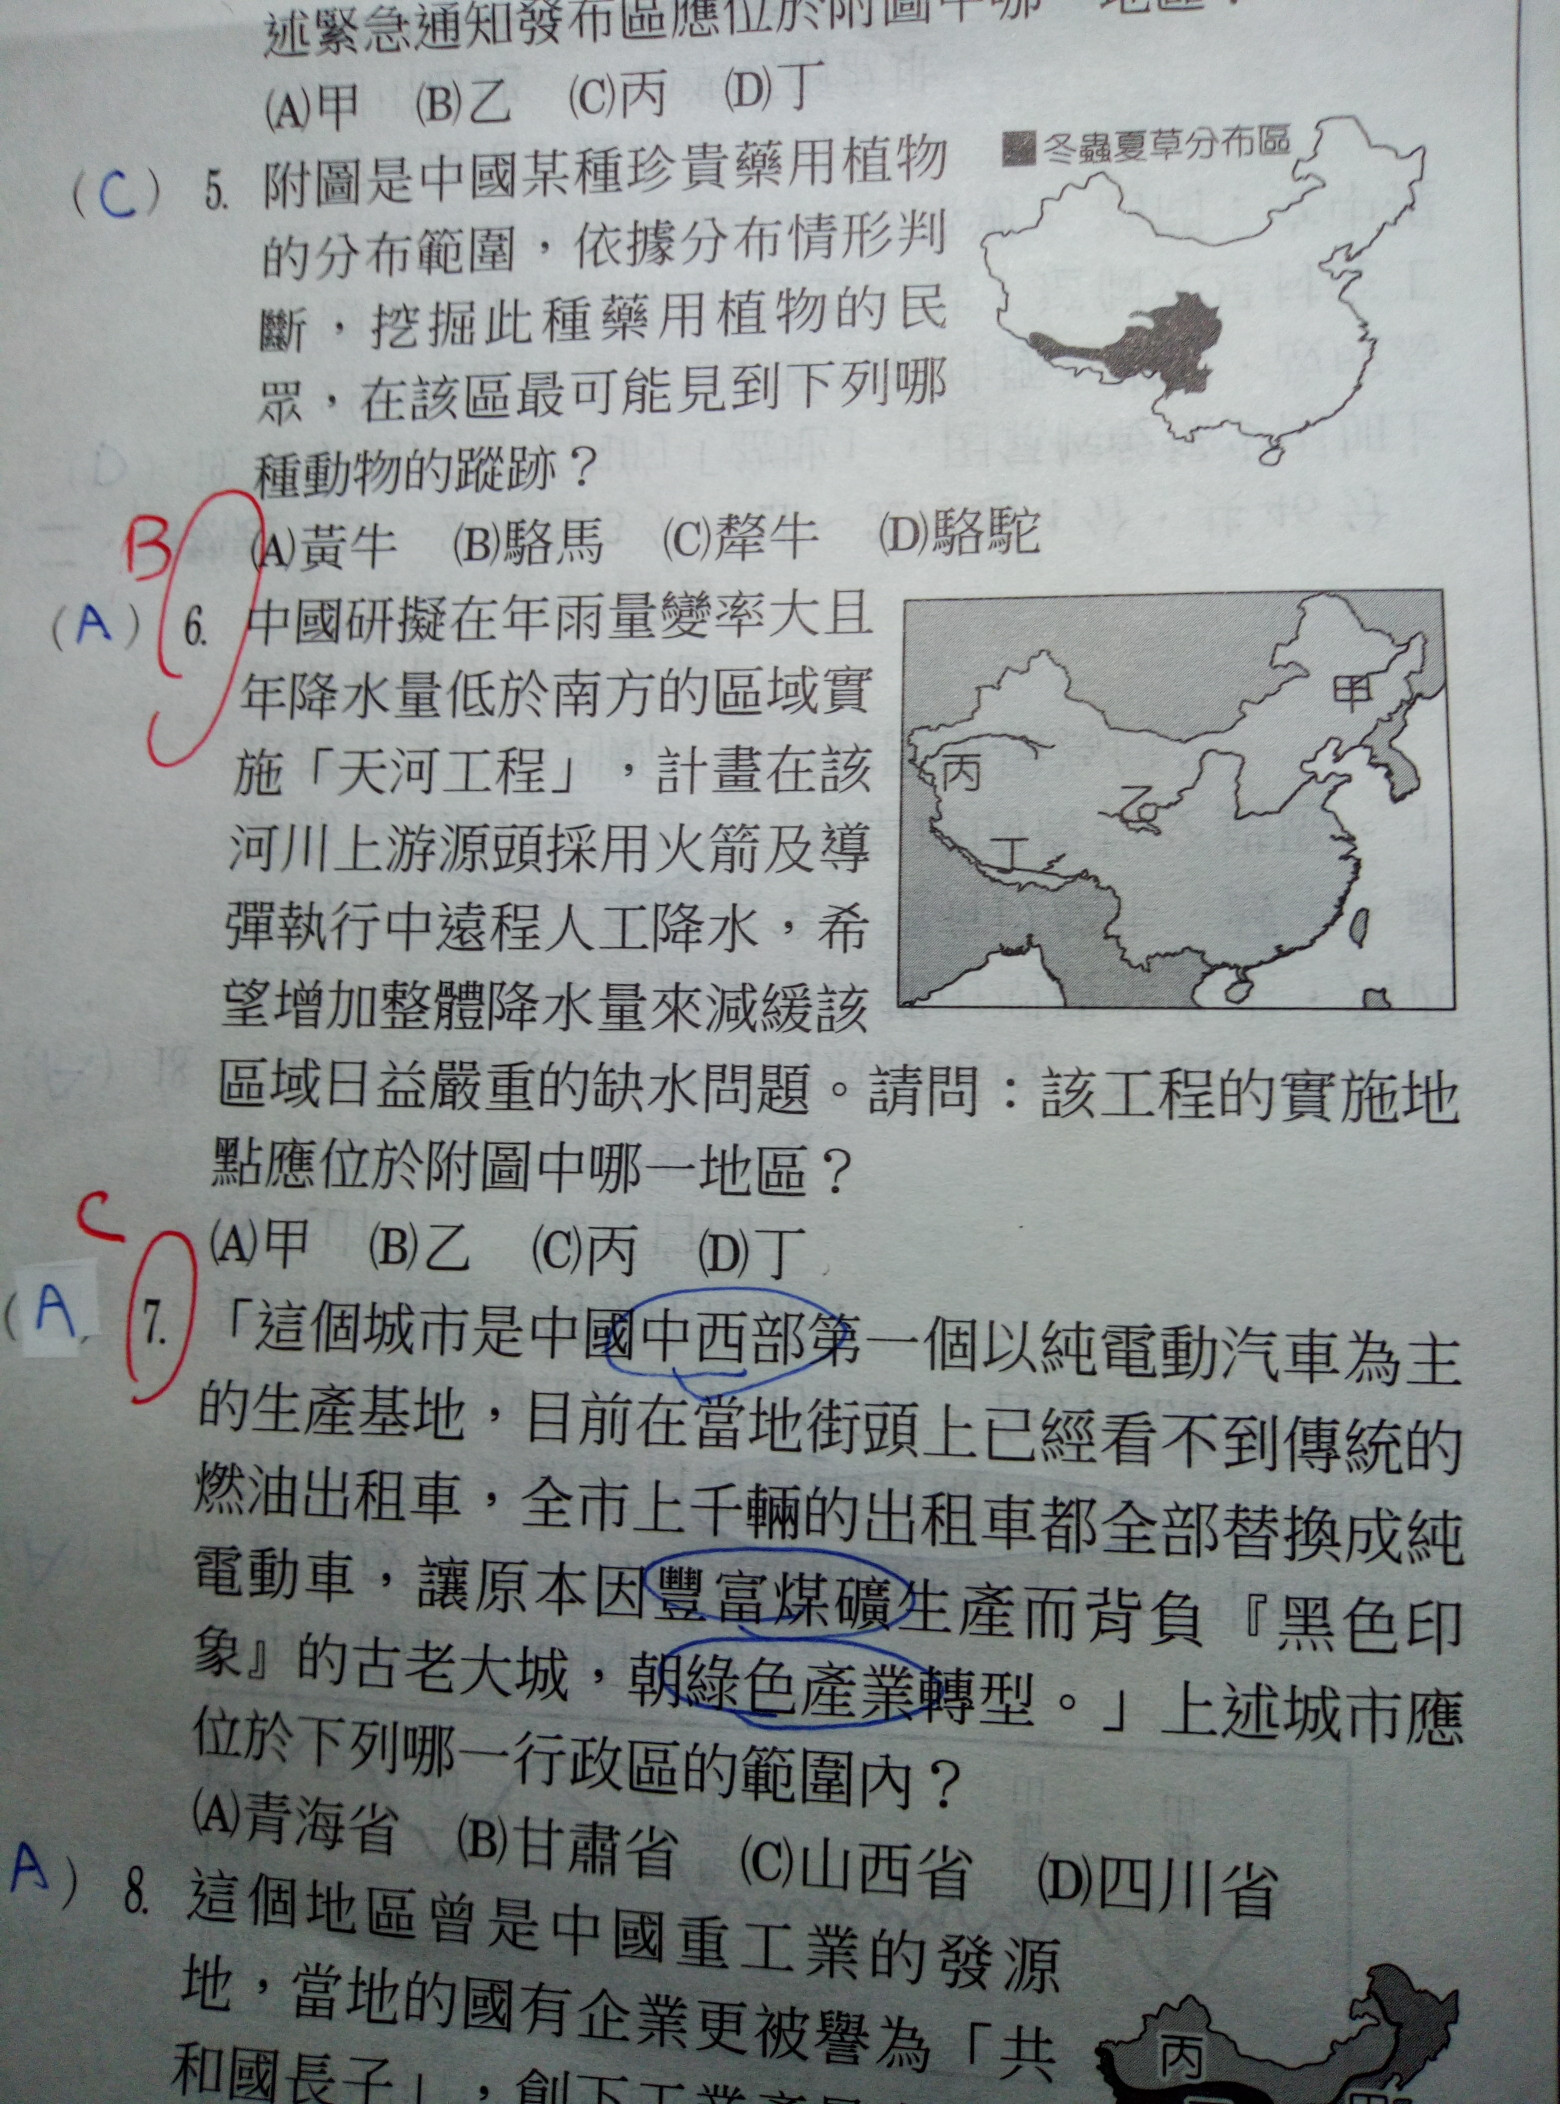 述緊急通知發布區應位於附圖中哪一地區？
(A)甲 (B)乙 (C)丙 (D)丁
(C) 5. 附圖是中國某種珍貴藥用植物
的分布範圍，依據分布情形判
斷，挖掘此種藥用植物的民
眾，在該區最可能見到下列哪
種動物的蹤跡？
(A)黃牛 (B)駱馬 (C)犛牛 (D)駱駝
冬蟲夏草分布區
B
(A) 6. 中國研擬在年雨量變率大且
年降水量低於南方的區域實
施「天河工程」，計畫在該
河川上游源頭採用火箭及導
彈執行中遠程人工降水，希
望增加整體降水量來減緩該
區域日益嚴重的缺水問題。請問：該工程的實施地
點應位於附圖中哪一地區？
(A)甲 (B)乙 (C)丙 (D)丁
甲
丙
乙
丁
C
(A 7. 「這個城市是中國中西部第一個以純電動汽車為主
的生產基地，目前在當地街頭上已經看不到傳統的
燃油出租車，全市上千輛的出租車都全部替換成純
電動車，讓原本因豐富煤礦生產而背負『黑色印
象』的古老大城，朝綠色產業轉型。」上述城市應
位於下列哪一行政區的範圍內？
(A)青海省 (B)甘肅省 (C)山西省 (D)四川省
A) 8. 這個地區曾是中國重工業的發源
地，當地的國有企業更被譽為「共
和國長子」，創下工業產
丙